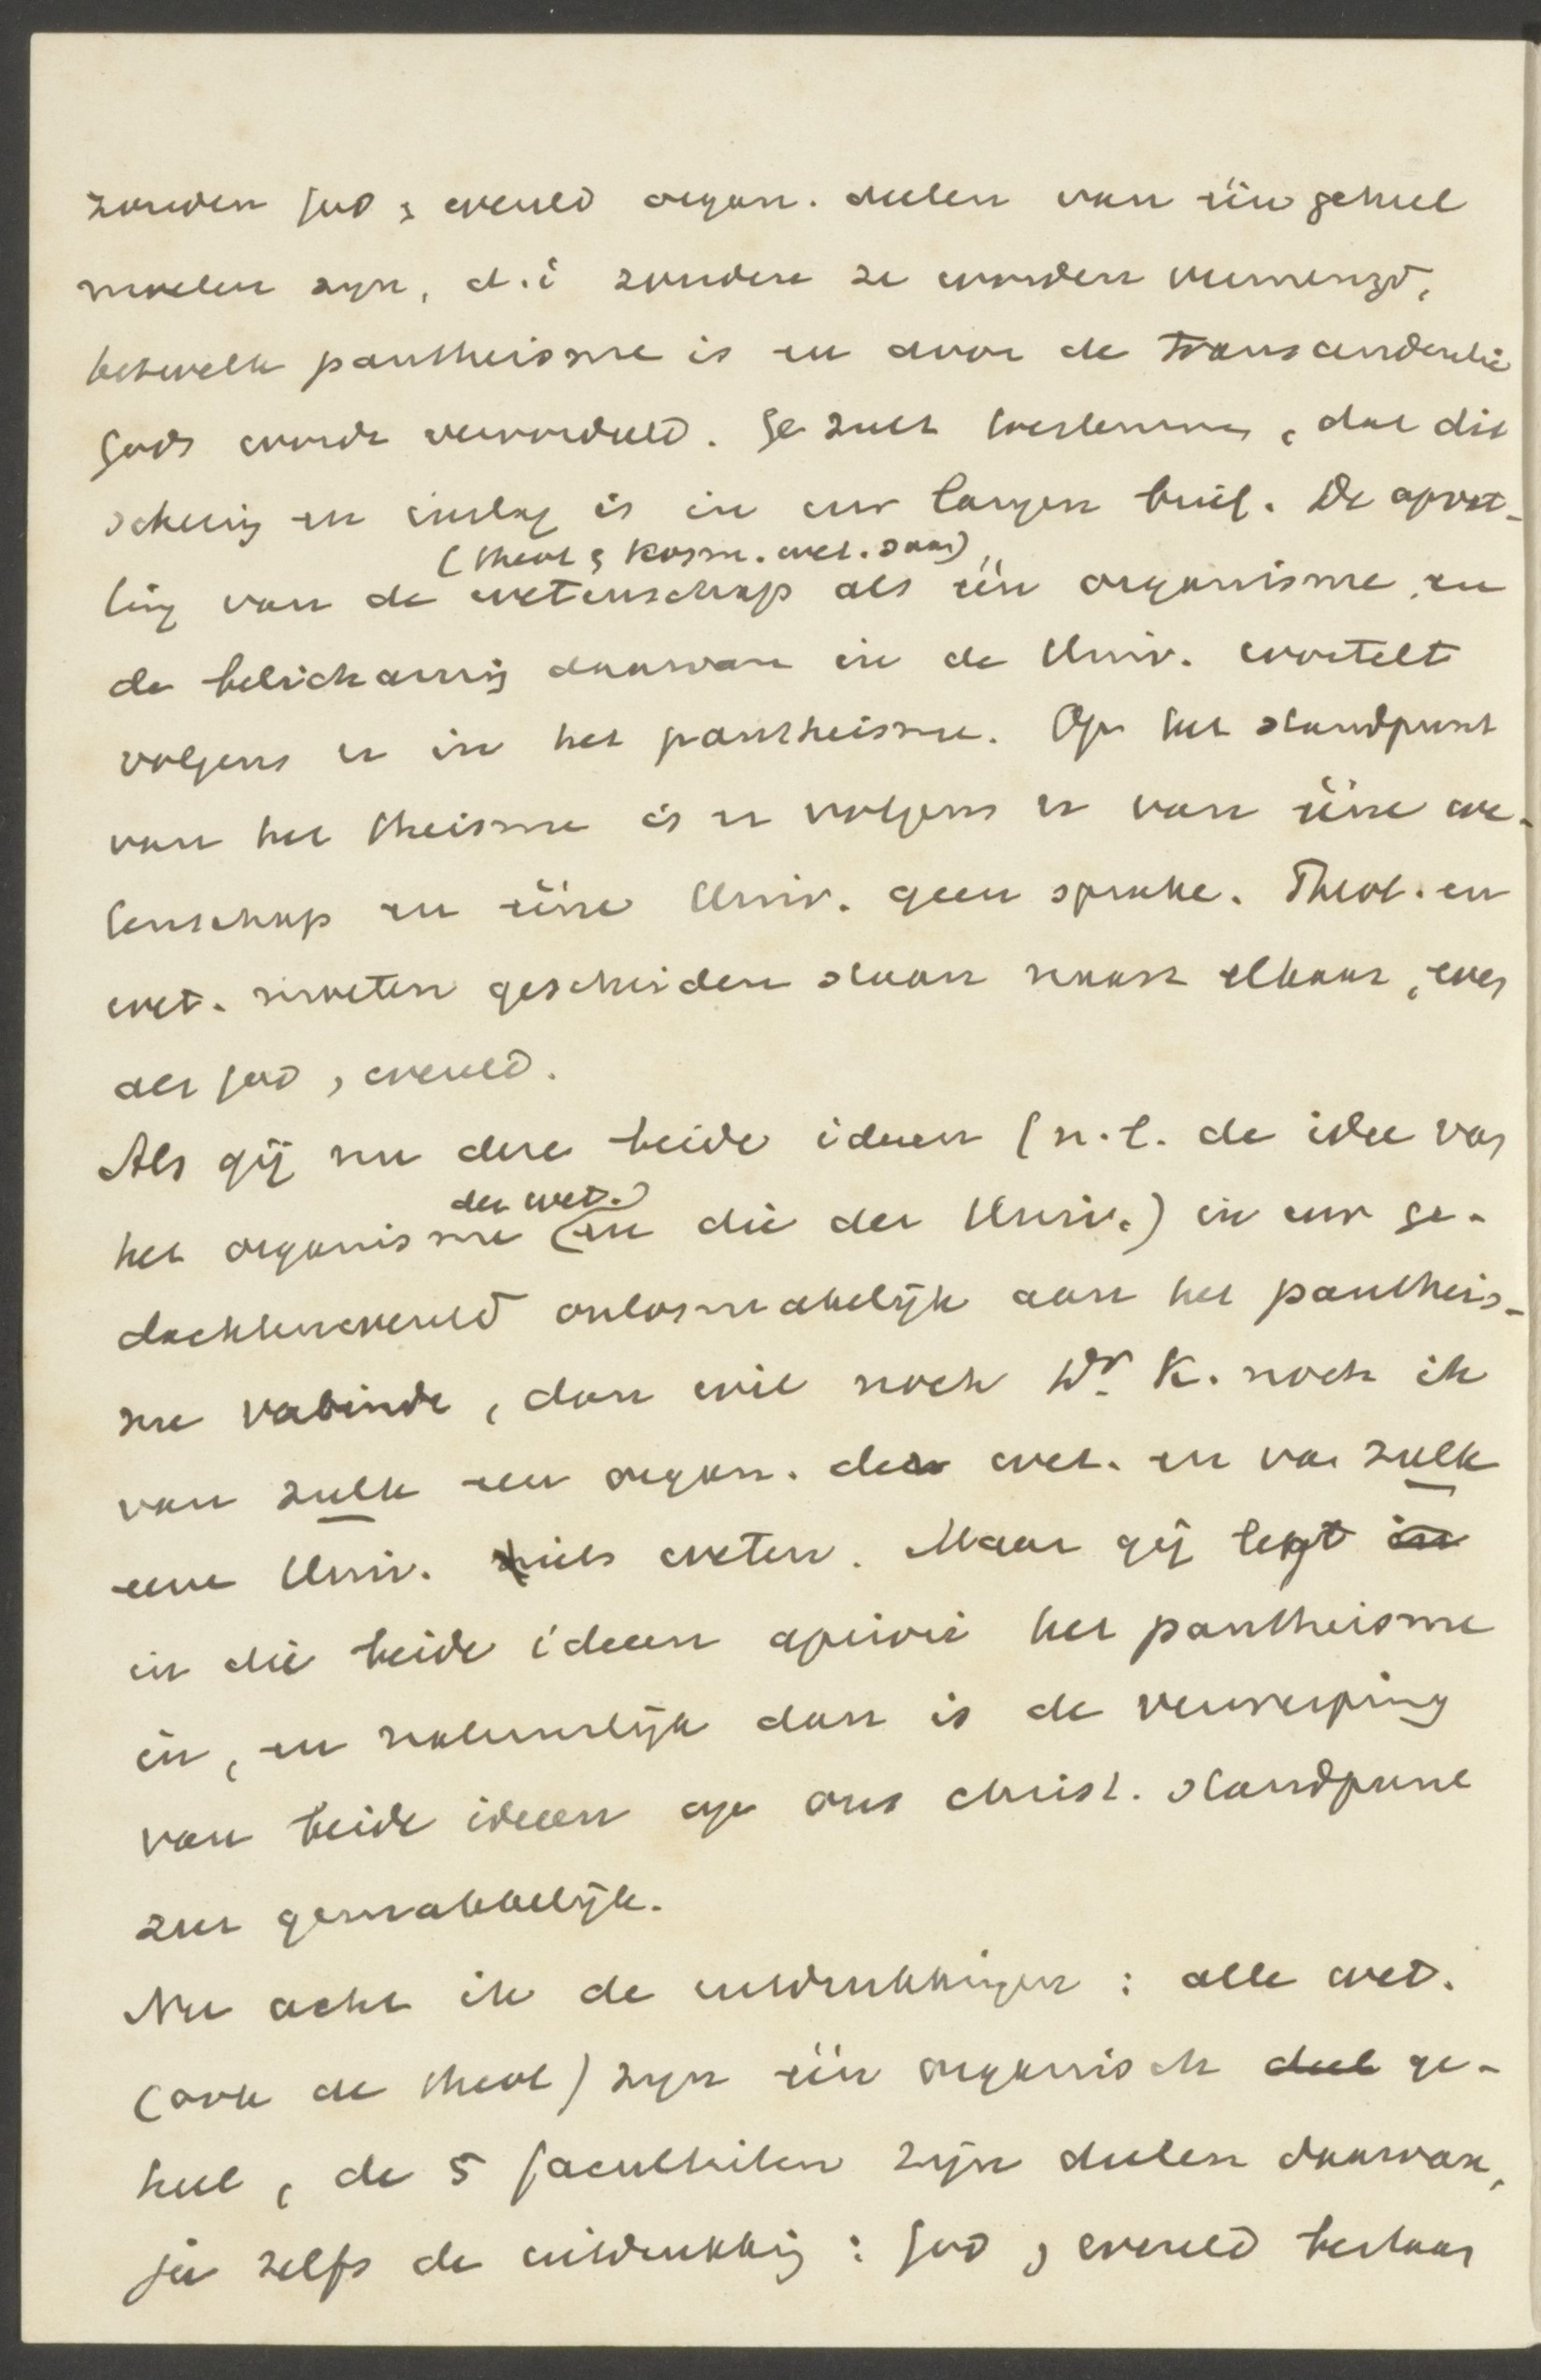 zouden God & wereld organ. deelen van één geheel
moeten zijn, d.i zouden ze worden vermengd,
hetwelk pantheisme is en door de transcendentie
Gods wordt veroordeeld. Ge zult toestemmen, dat dit
schering en inslag is in uw langen brief. De opvat-
(theol & kosm. wet. saam)
ling van de wetenschap als één organisme en
de belichaming daarvan in de Univ. wortelt
volgens u in het pantheisme. Op het standpunt
van het theisme is er volgens u van ééne we-
tenschap en ééne Univ. geen sprake. Theol. en
wet. moeten gescheiden staan naast elkaar, even
als God, wereld.
Als gij nu deze beide ideeen (n.l. de idee van
der wet.)
het organisme (en die der Univ.) in uw ge-
dachtenwereld onlosmakelijk aan het pantheis-
me verbindt, dan wil noch Dr. K. noch ik
van zulk een organ. der wet. en van zulk
eene Univ. niets weten. Maar gij legt in
in die beide ideeen apriori het pantheisme
in, en natuurlijk dan is de verwerping
van beide ideeen op ons christ. standpunt
zeer gemakkelijk.
Nu acht ik de uitdrukkingen: alle wet.
(ook de theol) zijn één organisch deel ge-
heel, de 5 faculteiten zijn deelen daarvan,
ja zelfs de uitdrukking: God, wereld bestaan